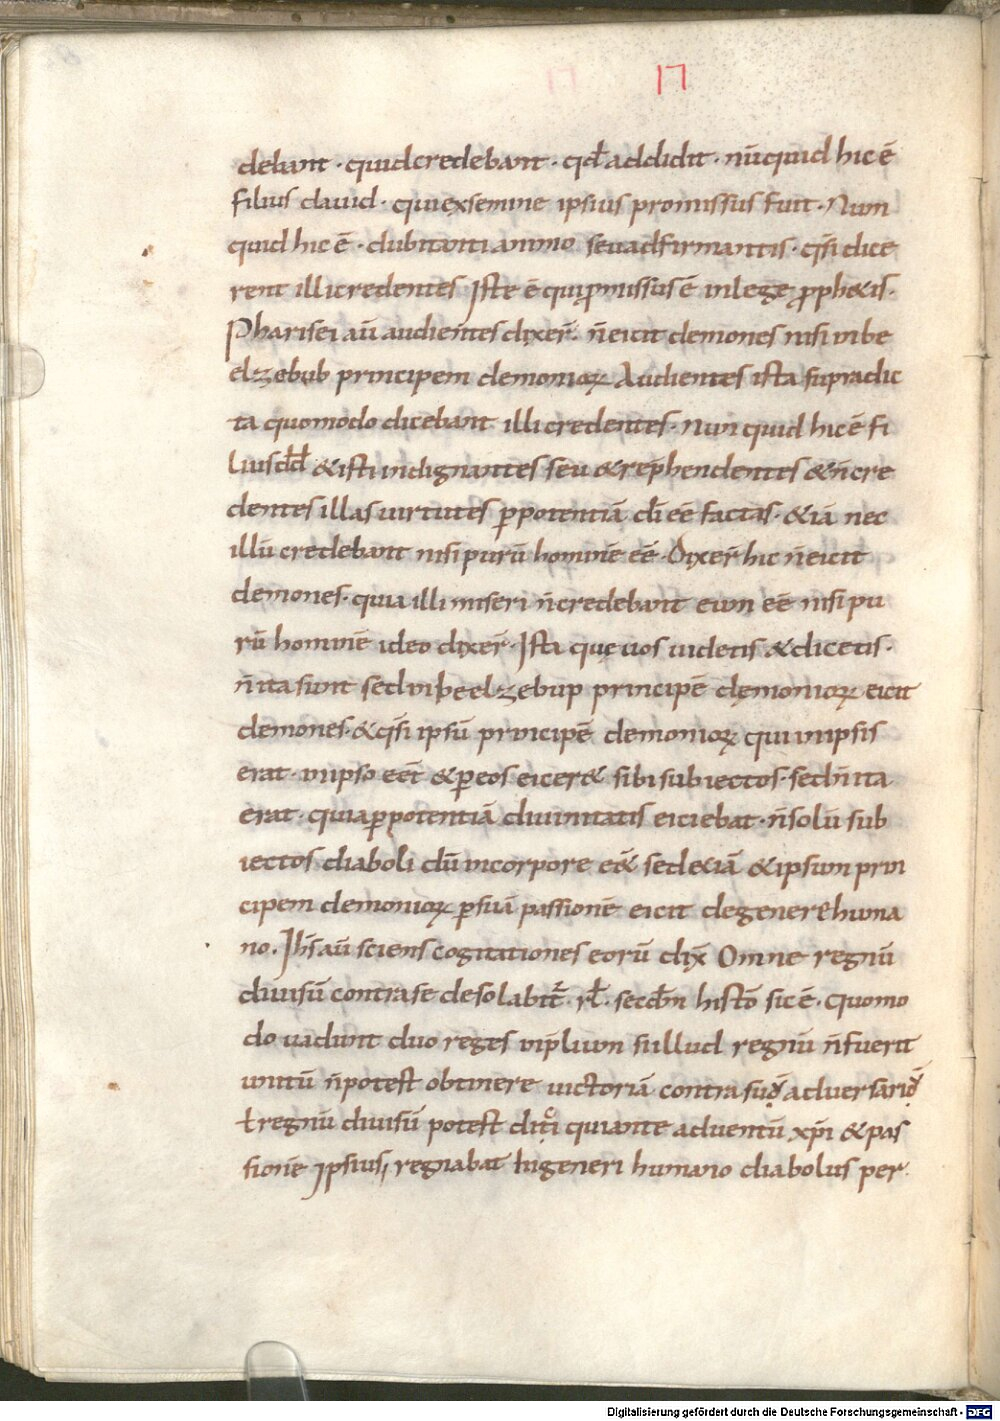 17
debant · quid credebant · qđ addidit · nūquid hic ē
filius dauid · qui ex semine ipsius promissus fuit · Nun
quid hic ē · dubitanti animo seu adfirmantis · qsi dice
rent illi credentes Iste ē qui pmissus ē in lege pphetis ·
Pharisei aū audientes dixer̄ · n̄ eicit demones nisi in be
elzebub principem demonioꝝ Audientes ista supradic
ta quomodo dicebant illi credentes · Nun quid hic ē fi
lius dđ & isti indignantes seu & rep̄hendentes & n̄ cre
dentes illas uirtutes ꝑ potentiā di eē factas · & iā nec
illū credebant nisi purū hominē eē · Dixer̄ hic n̄ eicit
demones · quia illi miseri n̄ credebant eum eē nisi pu
rū hominē ideo dixer̄ · Ista quę uos uidetis & dicetis ·
n̄ ita sunt sed in beelzebup principē dęmonioꝝ eicit
demones · & qsi ipsū principē demonioꝝ qui in ipsis
erat · in ipso eēt & ꝑ eos eicer& sibi subiectos · sed n̄ ita
erat · quia ꝑ potentiā diuinitatis eiciebat · n̄ solū sub
iectos diaboli dū in corpore eēt sed &iā & ipsum prin
cipem demonioꝝ ꝑ suā passionē eicit de genere huma
no · Ih̄s aū sciens cogitationes eorū dix̄ Omne regnū
diuisū contra se desolabit̄ · rł · secđm histō sic ē · quomo
do uadunt duo reges in plium si illud regnū n̄ fuerit
unitū n̄ potest obtinere uictoriā contra suū aduersariū
ł regnū diuisū potest dici qui ante aduentū xp̄i & pas
sionē ipsius, regnabat in generi humano diabolus per
Digitalisierung gefördert durch die Deutsche Forschungsgemeinschaft - DFG